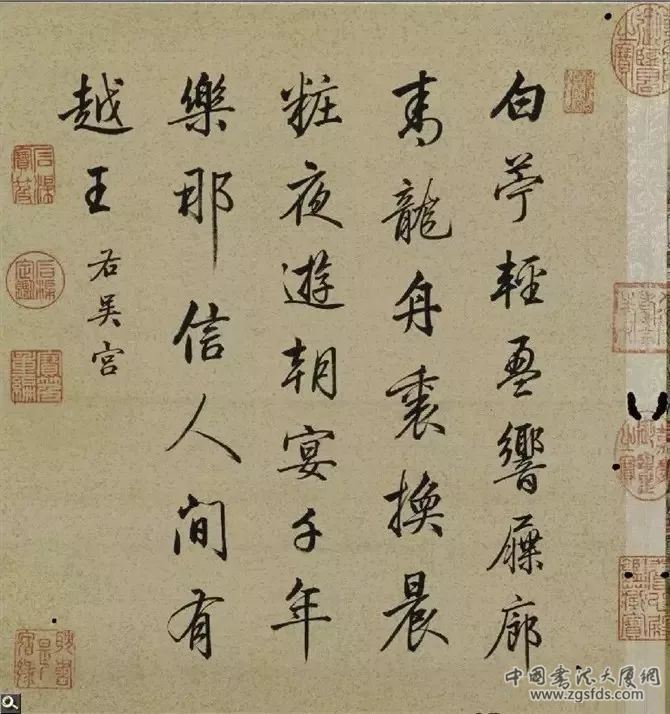 白苧輕盈響屧廊
青龍舟裏換晨
粧夜遊朝宴千年
樂那信人間有
越王 右吳宮
中國書法大廈網
www.zgsfds.com